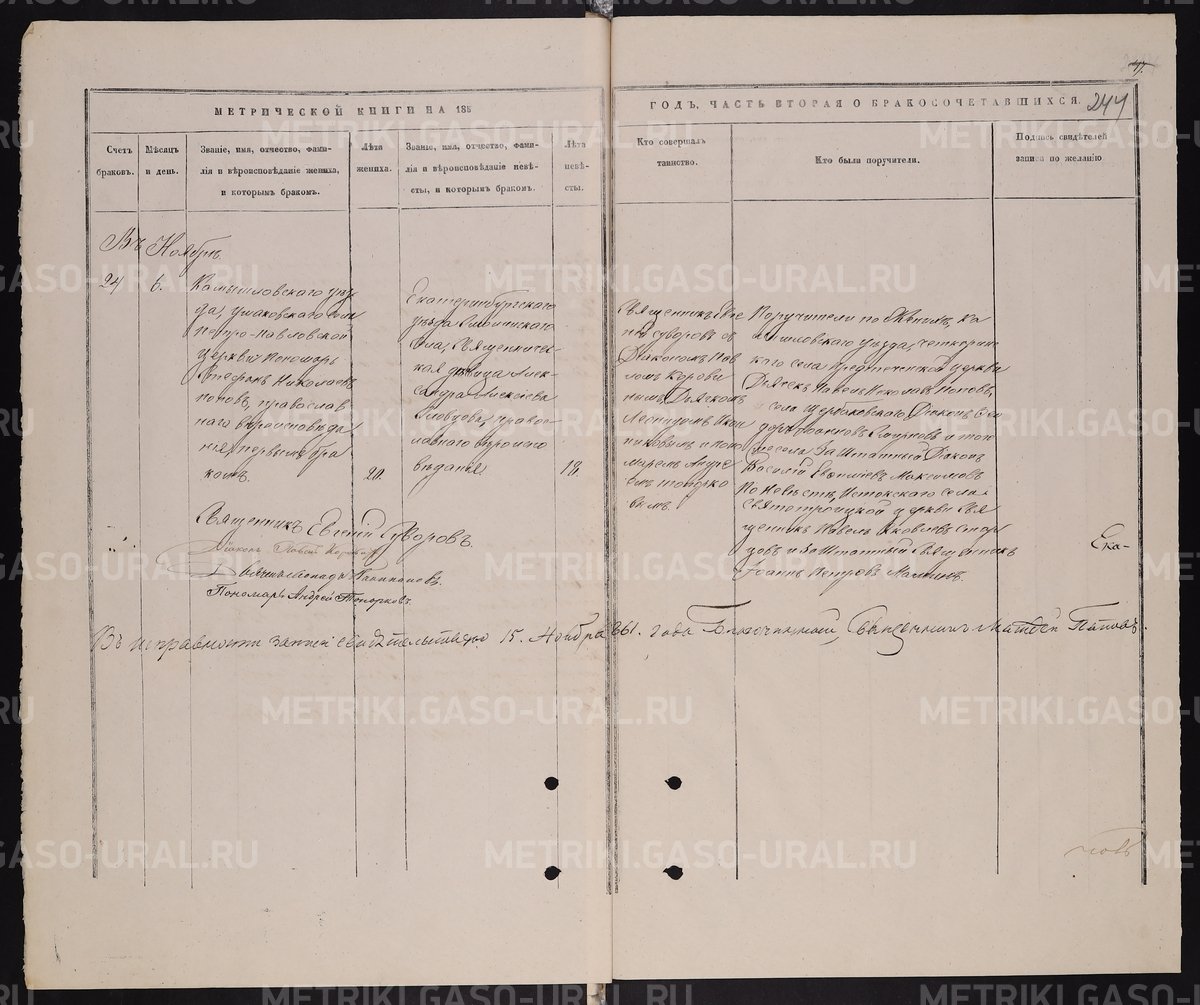 244
МЕТРИЧЕСКОЙ КНИГИ НА 185
ГОДЪ, ЧАСТЬ ВТОРАЯ О БРАКОСОЧЕТАВШИХСЯ.
Счетъ
браковъ.
Мѣсяцъ
и день.
Званіе, имя, отчество, фами-
лія и вѣроисповѣданіе жениха,
и которымъ бракомъ.
Лѣта
жениха.
Званіе, имя, отчество, фами-
лія и вѣроисповѣданіе невѣ-
сты, и которымъ бракомъ.
Лѣта
невѣ-
сты.
Кто совершалъ
таинство.
Кто были поручители.
Подпись свидѣтелей
записи по желанію
Въ Ноябрѣ.
24
6.
Камышловскаго уѣз
да, села
Петро-Павловской
Церкви Пономарь
Стефанъ Николаевъ
Поповъ, православ
наго вѣроисповѣда
нія, первымъ бра
комъ.
20.
Екатеринбургскаго
уѣзда
села, Священничес-
кая дѣвица Алек-
сандра Алексѣева
Словцова, право-
славнаго вѣроиспо
вѣданія.
18.
Священникъ Евге
ній Суворовъ съ
Діакономъ Пав
ломъ Корови
нымъ, Дьячкомъ
и поно
маремъ Андре
емъ Топорко
вымъ.
Поручители по Женихѣ, Ка
мышловскаго уѣзда,
села Предтеченской церкви
Дьячекъ Павелъ Николаевъ Поповъ,
села Щербаковскаго Діаконъ
Смирновъ и того
же села Заштатный Діаконъ
Василій Максимовъ
По Невѣстѣ, Истокскаго села
Святотроицкой церкви Свя
щенникъ Павелъ Яковлевъ
и Заштатный Священникъ
Іоаннъ Петровъ
Ека-
Священникъ Евгеній Суворовъ.
Діаконъ Павелъ
Дьячекъ
Пономарь Андрей Топорковъ.
Въ исправности записи свидѣтельствую 15. Ноября 861. года Благочинный Священникъ Матвей Поповъ.
METRIKI.GASO-URAL.RU